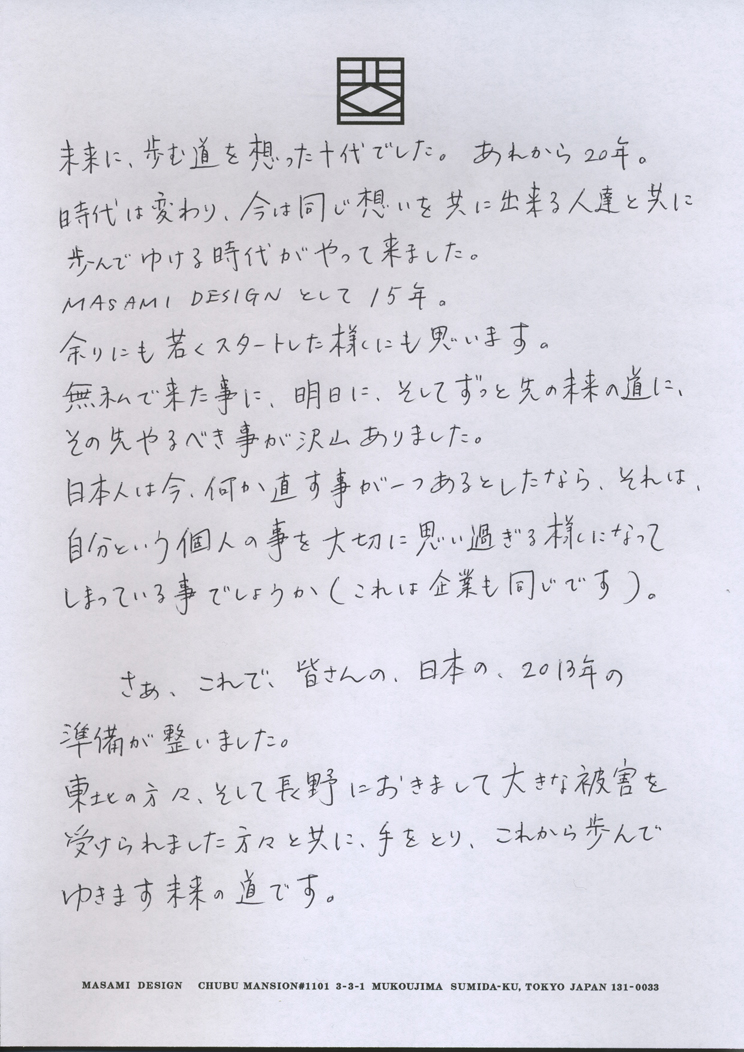 未来に、歩む道を想った十代でした。 あれから20年。
時代は変わり、今は同じ想いを共に出来る人達と共に
歩んでゆける時代がやって来ました。
MASAMI DESIGN として 15年。
余りにも若くスタートした様にも思います。
無私で来た事に、明日に、そしてずっと先の未来の道に、
その先やるべき事が沢山ありました。
日本人は今、何か直す事が一つあるとしたなら、それは、
自分という個人の事を大切に思い過ぎる様になって
しまっている事でしょうか(これは企業も同じです)。
さあ、これで、皆さんの、日本の、2013年の
準備が整いました。
東北の方々、そして長野におきまして大きな被害を
受けられました方々と共に、手をとり、これから歩んで
ゆきます未来の道です。
MASAMI DESIGN CHUBU MANSION#1101 3-3-1 MUKOUJIMA SUMIDA-KU, TOKYO JAPAN 131-0033